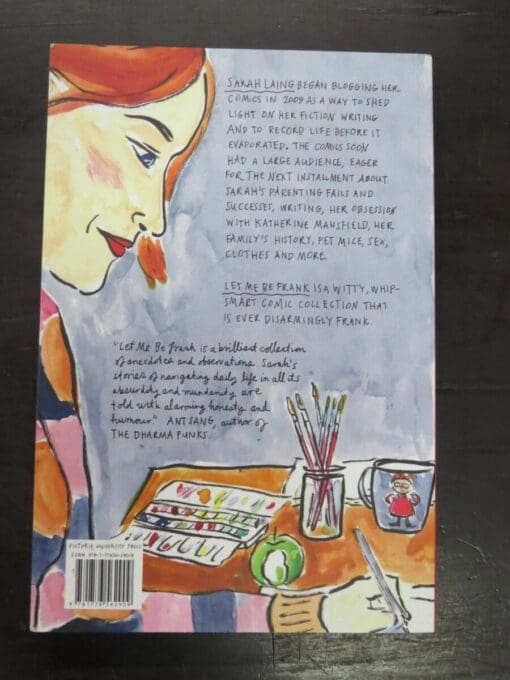 SARAH LAING BEGAN BLOGGING HER
COMICS IN 2009 AS A WAY TO SHED
LIGHT ON HER FICTION WRITING
AND TO RECORD LIFE BEFORE IT
EVAPORATED. THE COMICS SOON
HAD A LARGE AUDIENCE, EAGER
FOR THE NEXT INSTALLMENT ABOUT
SARAH'S PARENTING FAILS AND
SUCCESSES, WRITING, HER OBSESSION
WITH KATHERINE MANSFIELD, HER
FAMILY'S HISTORY, PET MICE, SEX,
CLOTHES AND MORE.
LET ME BE FRANK IS A WITTY, WHIP-
SMART COMIC COLLECTION THAT
IS EVER DISARMINGLY FRANK.
"Let Me Be Frank is a brilliant collection
of anecdotes and observations. Sarah's
stories of navigating daily life in all its
absurdity and mundanity are
told with alarming honesty and
humour." ANT SANG, author of
THE DHARMA PUNKS
VICTORIA UNIVERSITY PRESS
ISBN